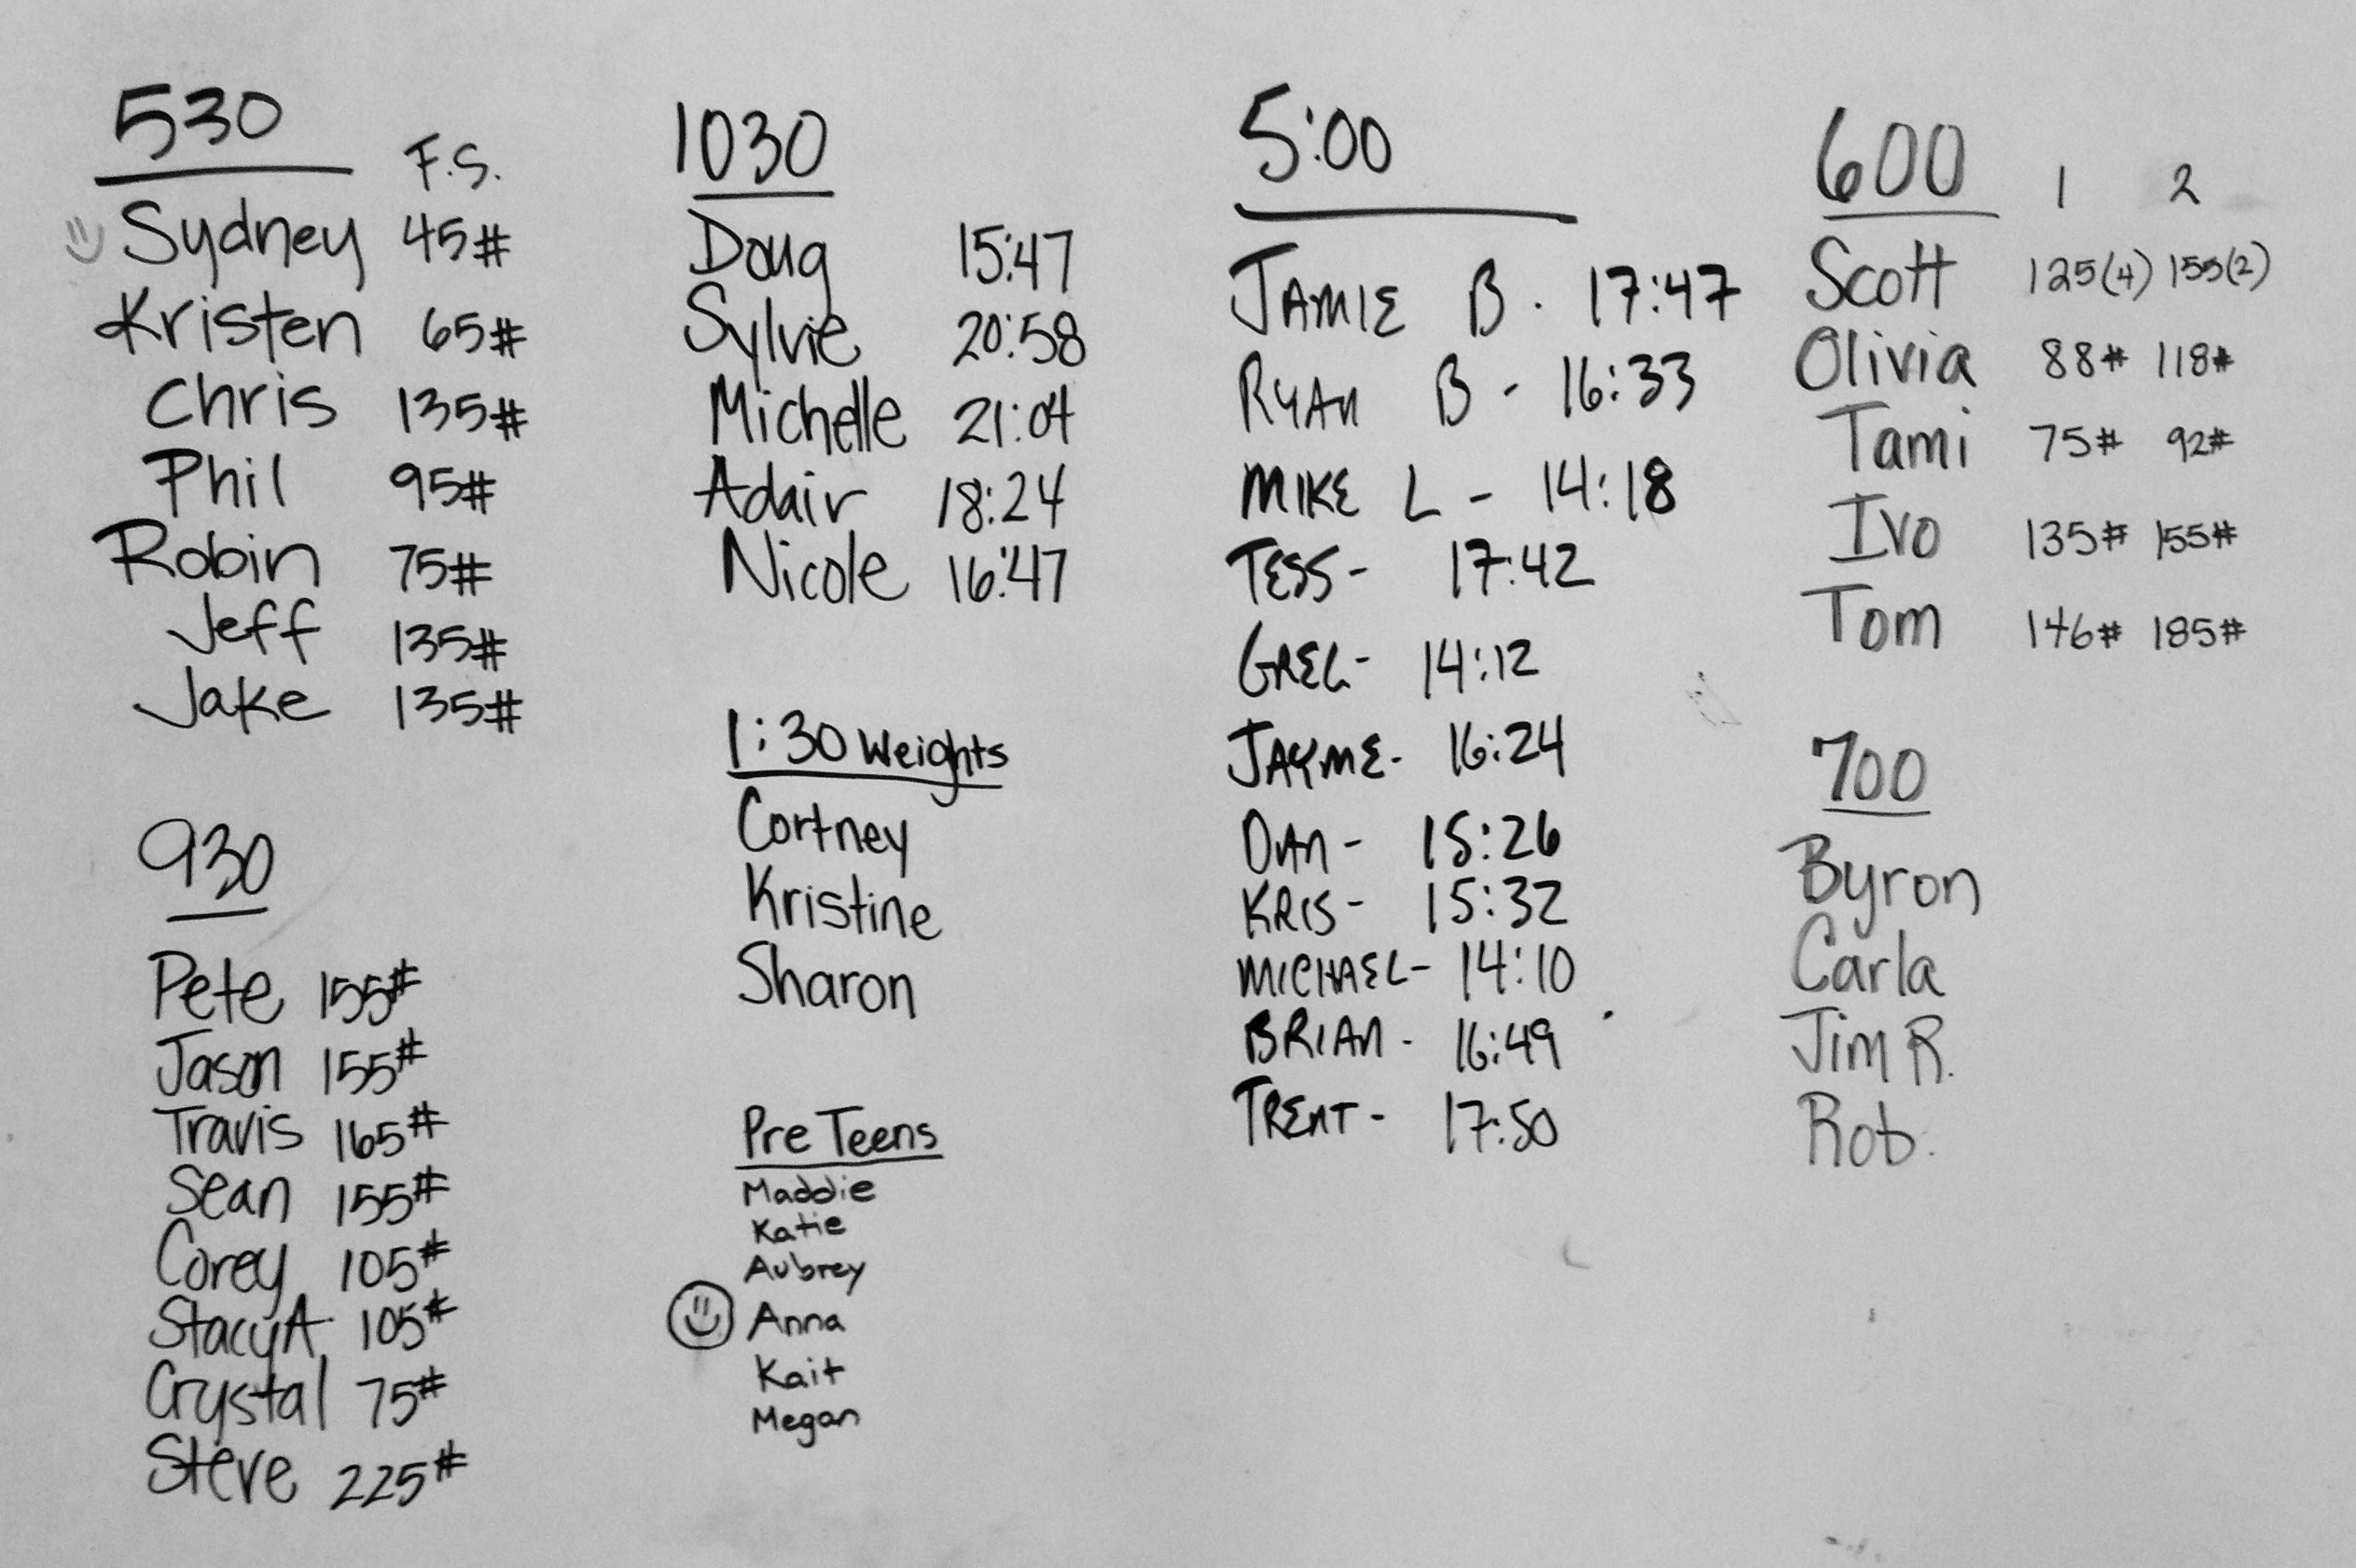 530 F.S.
Sydney 45#
Kristen 65#
Chris 135#
Phil 95#
Robin 75#
Jeff 135#
Jake 135#
930
Pete 155#
Jason 155#
Travis 165#
Sean 155#
Corey 105#
Stacy A 105#
Crystal 75#
Steve 225#
1030
Doug 15:47
Sylvie 20:58
Michelle 21:04
Adair 18:24
Nicole 16:47
1:30 Weights
Cortney
Kristine
Sharon
Pre Teens
Maddie
Katie
Aubrey
Anna
Kait
Megan
5:00
JAMIE B. 17:47
RYAN B - 16:33
MIKE L - 14:18
TESS- 17:42
GREG- 14:12
JAYME- 16:24
DAN- 15:26
KRIS- 15:32
MICHAEL- 14:10
BRIAN- 16:49
TRENT- 17:50
600 1 2
Scott 125(4) 155(2)
Olivia 88# 118#
Tami 75# 92#
Ivo 135# 155#
Tom 146# 185#
700
Byron
Carla
Jim R.
Rob.